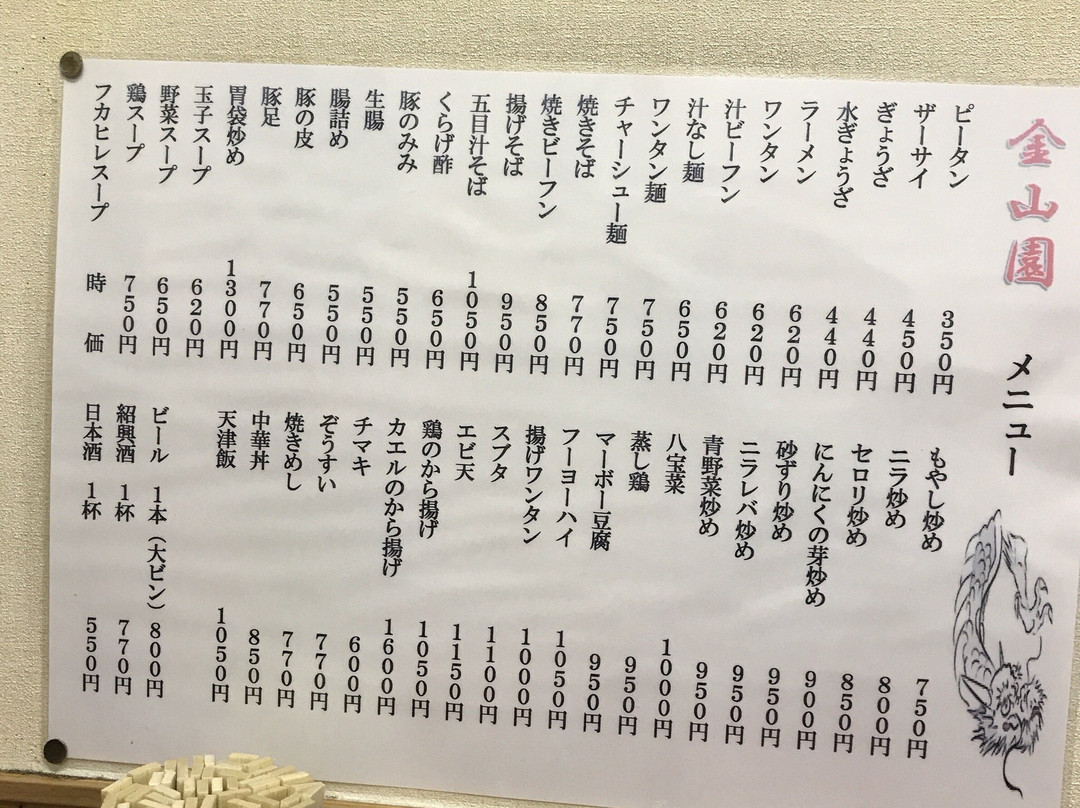 金山園 メニュー
ピータン 350円
ザーサイ 450円
ぎょうざ 440円
水ぎょうざ 440円
ラーメン 620円
ワンタン 620円
汁ビーフン 620円
汁なし麺 650円
ワンタン麺 750円
チャーシュー麺 750円
焼きそば 770円
焼きビーフン 850円
揚げそば 950円
五目汁そば 1050円
くらげ酢 650円
豚のみみ 550円
生腸 550円
腸詰め 550円
豚の皮 650円
豚足 770円
胃袋炒め 1300円
玉子スープ 620円
野菜スープ 650円
鶏スープ 750円
フカヒレスープ 時価
もやし炒め 750円
ニラ炒め 800円
セロリ炒め 850円
にんにくの芽炒め 900円
砂ずり炒め 950円
ニラレバ炒め 950円
青野菜炒め 950円
八宝菜 1000円
蒸し鶏 950円
マーボー豆腐 950円
フーヨーハイ 1050円
揚げワンタン 1000円
スブタ 1100円
エビ天 1150円
鶏のから揚げ 1050円
カエルのから揚げ 1600円
チマキ 600円
ぞうすい 770円
焼きめし 770円
中華丼 850円
天津飯 1050円
ビール 1本(大ビン) 800円
紹興酒 1杯 770円
日本酒 1杯 550円